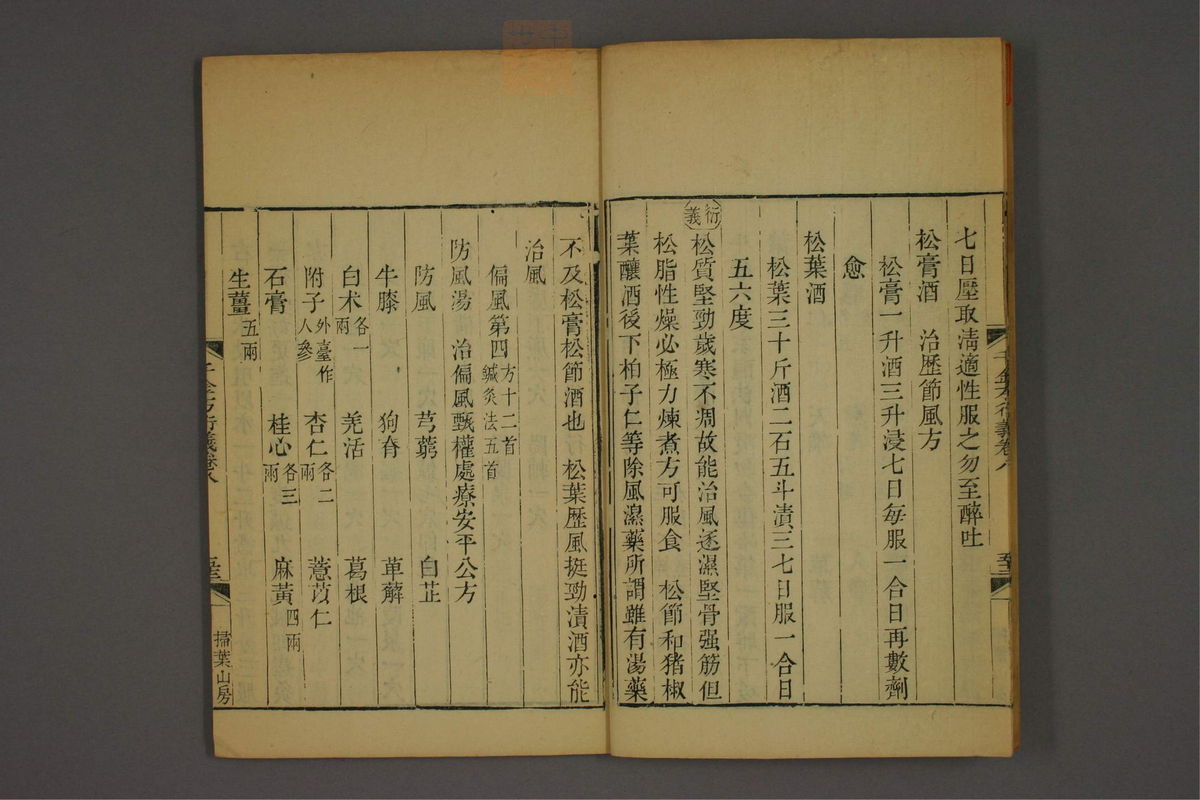 七日壓取清適性服之勿至醉吐
松膏酒　治歷節風方
松膏一升酒三升浸七日每服一合日再數劑
愈
松葉酒
松葉三十斤酒二石五斗漬三七日服一合日
五六度
衍義
松質堅勁歲寒不凋故能治風逐濕堅骨强筋但
松脂性燥必極力煉煮方可服食　松節和猪椒
葉釀酒後下柏子仁等除風濕藥所謂雖有湯藥
不及松膏松節酒也　松葉歷風挺勁漬酒亦能
治風
偏風第四　方十二首　鍼灸法五首
防風湯　治偏風甄權處療安平公方
防風　芎藭　白芷
牛膝　狗脊　萆薢
白朮各一兩　羌活　葛根
附子外臺作人參　杏仁各二兩　薏苡仁
石膏　桂心各三兩　麻黃四兩
生薑五兩
千金方衍義卷八
掃葉山房